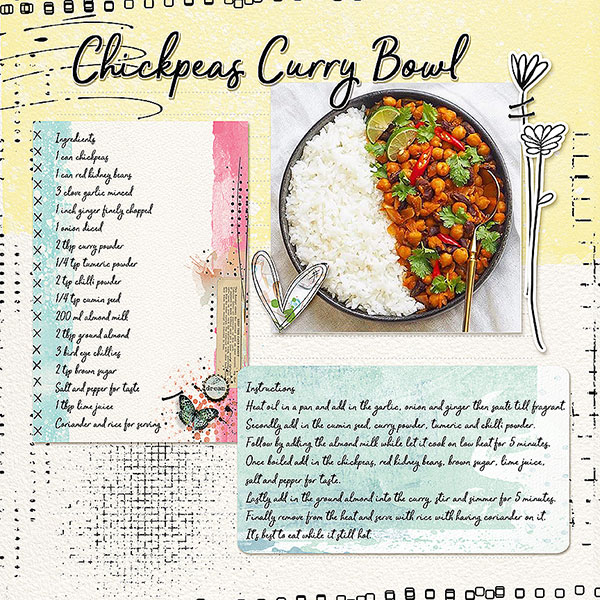 Chickpeas Curry Bowl
Ingredients
1 can chickpeas
1 can red kidney beans
3 clove garlic minced
1 inch ginger finely chopped
1 onion diced
2 tbsp curry powder
1/4 tsp tumeric powder
2 tsp chilli powder
1/4 tsp cumin seed
200 ml almond milk
2 tbsp ground almond
3 bird eye chillies
2 tsp brown sugar
Salt and pepper for taste
1 tbsp lime juice
Coriander and rice for serving
dream
Instructions
Heat oil in a pan and add in the garlic, onion and ginger then saute till fragrant.
Secondly add in the cumin seed, curry powder, tumeric and chilli powder.
Follow by adding the almond milk while let it cook on low heat for 5 minutes.
Once boiled add in the chickpeas, red kidney beans, brown sugar, lime juice,
salt and pepper for taste.
Lastly add in the ground almond into the curry, stir and simmer for 5 minutes.
Finally remove from the heat and serve with rice with having coriander on it.
It's best to eat while it still hot.